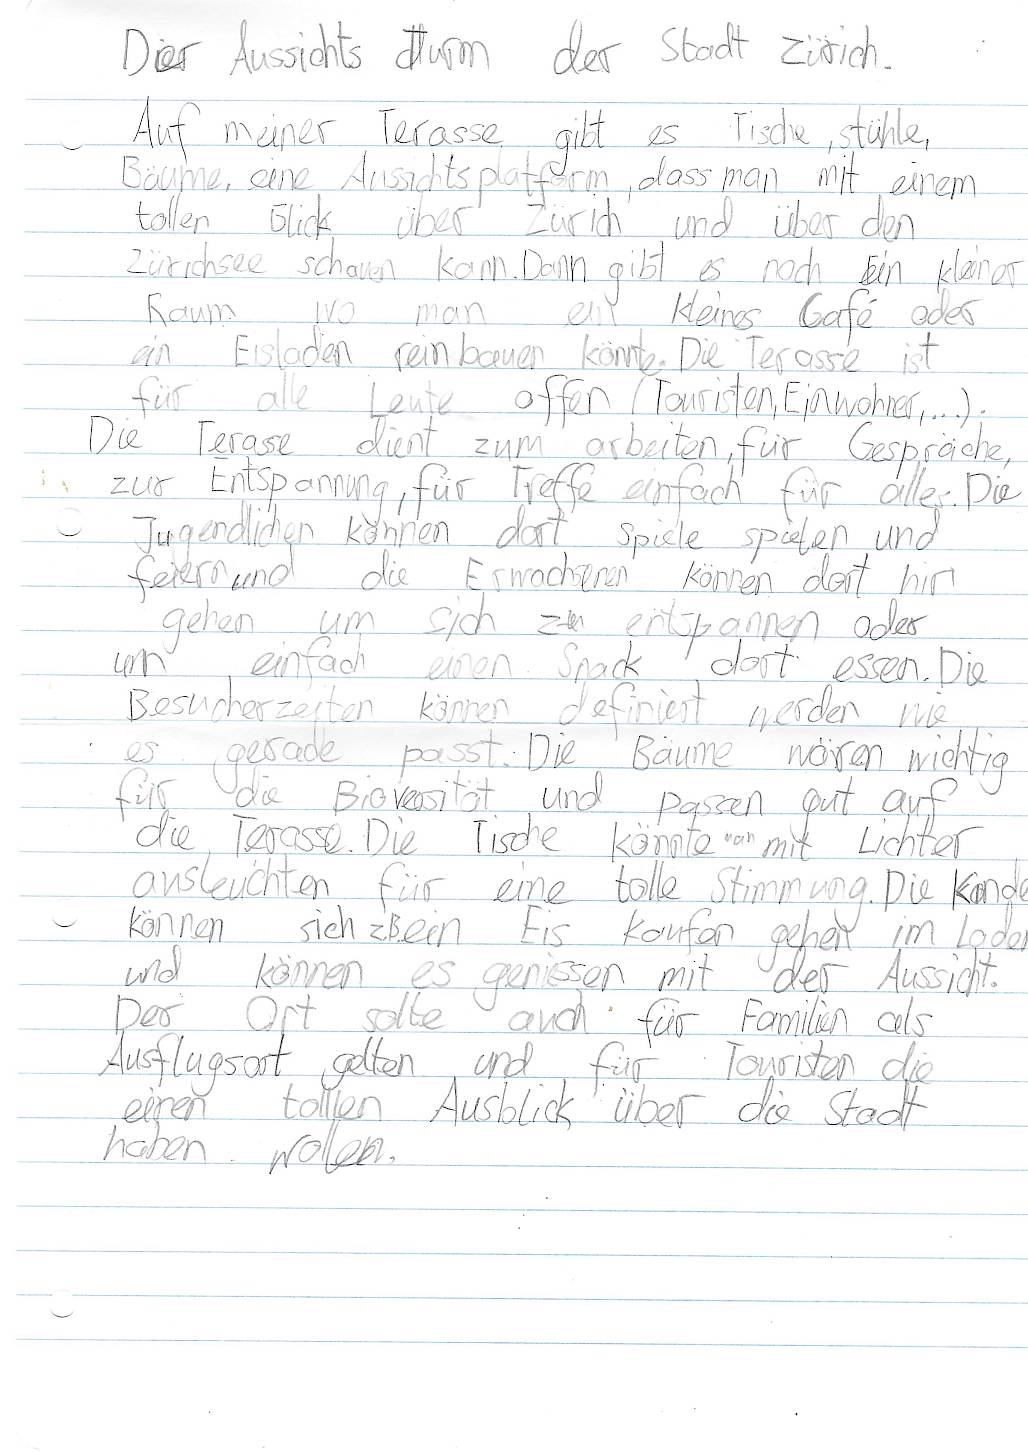 Der Aussichts Turm der Stadt Zürich.
Auf meiner Terasse gibt es Tische, stühle,
Bäume, eine Aussichtsplatform, dass man mit einem
tollen Blick über Zürich und über den
Zürichsee schauen kann. Dann gibt es noch Ein kleiner
Raum wo man ein kleines Café oder
ein Eisladen reinbauen könnte. Die Terasse ist
für alle Leute offen (Touristen, Einwohner, ...).
Die Terase dient zum arbeiten, für Gespräche,
zur Entspannung, für Treffe einfach für alles. Die
Jugendlichen können dort spiele spielen und
feiern und die Erwachsenen können dort hin
gehen um sich zu entspannen oder
um einfach einen Snack dort essen. Die
Besucherzeiten können definiert werden wie
es gerade passt. Die Bäume wären wichtig
für die Bioversität und passen gut auf
die Terasse. Die Tische könnte man mit Lichter
ausleuchten für eine tolle Stimmung. Die
können sich z.B. ein Eis kaufen gehen im Laden
und können es geniessen mit der Aussicht.
Der Ort solte auch für Familien als
Ausflugsort gelten und für Touristen die
einen tollen Ausblick über die Stadt
haben wollen.